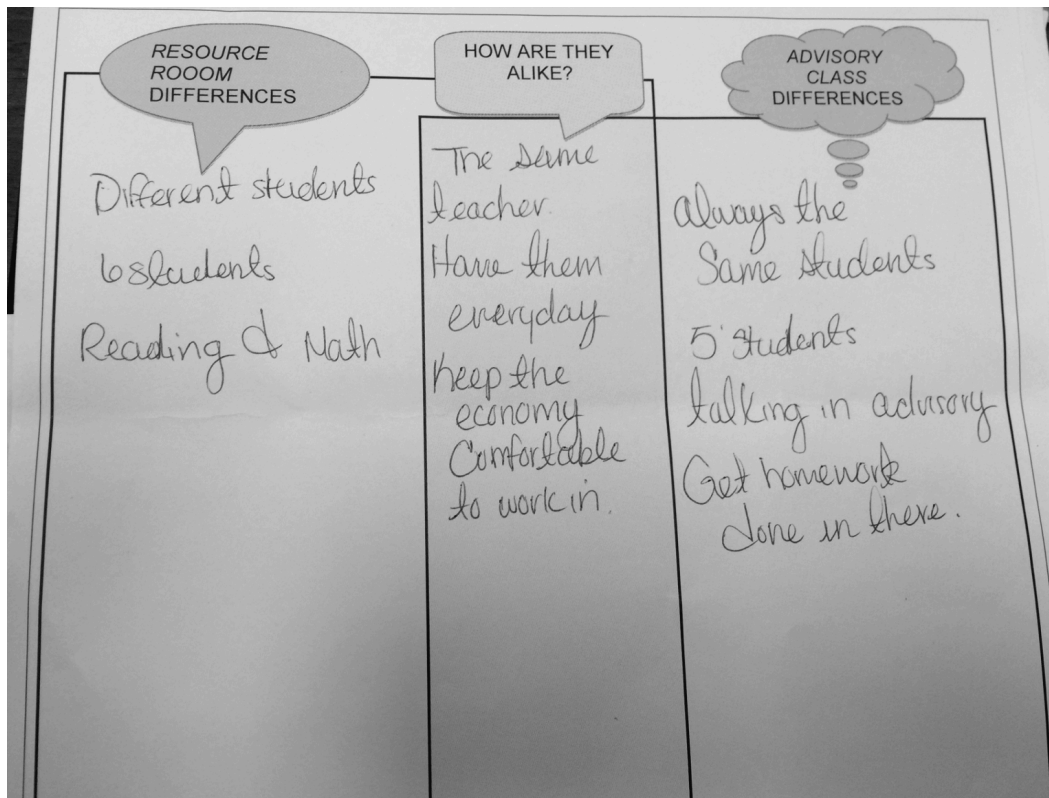 RESOURCE
ROOOM
DIFFERENCES
Different students
6 students
Reading & Math
HOW ARE THEY
ALIKE?
The same
teacher.
Have them
everyday
Keep the
economy
Comfortable
to work in.
ADVISORY
CLASS
DIFFERENCES
always the
Same students
5 students
talking in advisory
Get homework
done in there.